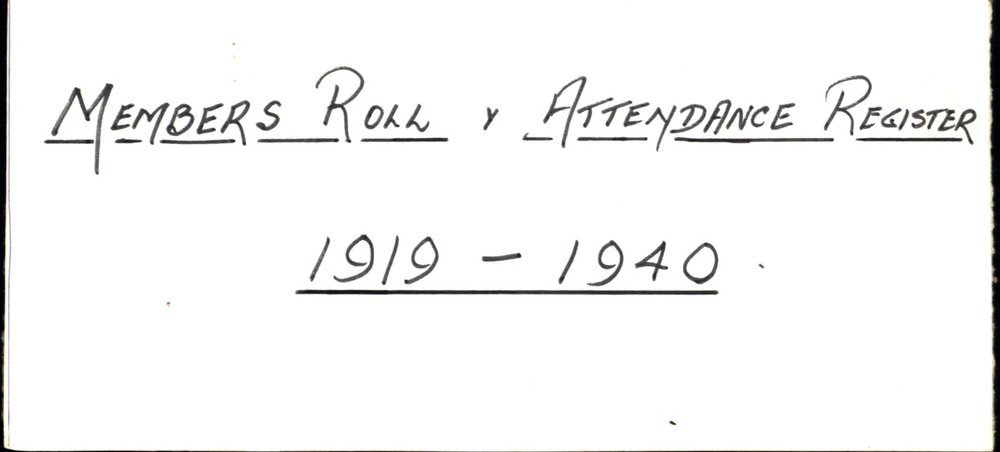 MEMBERS ROLL & ATTENDANCE REGISTER
1919 - 1940